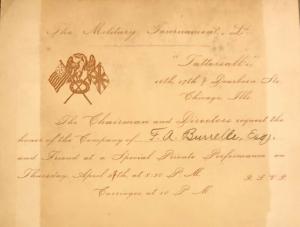 The Military Tournament, Ld.
"Tattersall's"
16th, 17th & Dearborn Sts
Chicago, Ills.
The Chairman and Directors request the
honor of the Company of F. A. Burrelle, Esq.
and Friend at a Special Private Performance on
Thursday, April 9th at 8:30 P.M.
R.S.V.P.
Carriages at 10 P.M.